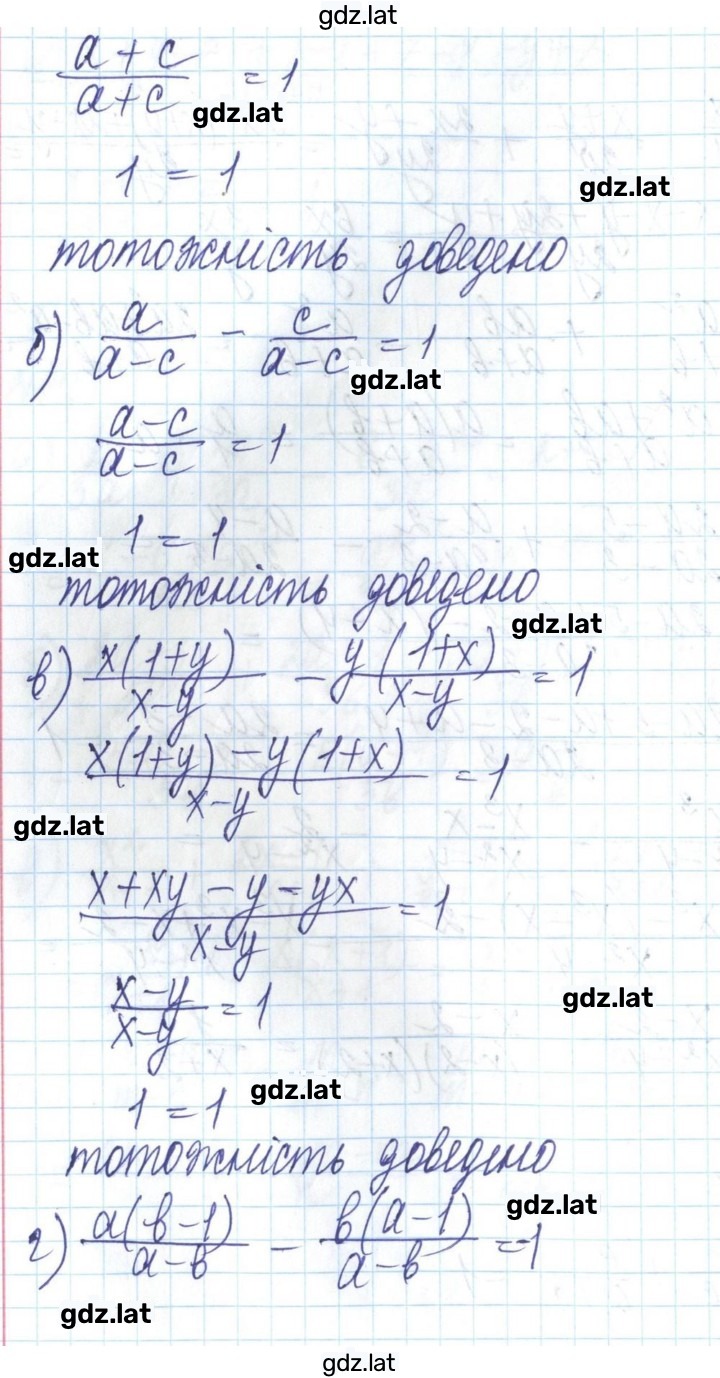 gdz.lat
a+c / a+c = 1
gdz.lat
1 = 1
gdz.lat
тотожність доведено
б) a / a-c - c / a-c = 1
gdz.lat
a-c / a-c = 1
1 = 1
gdz.lat
тотожність доведено
gdz.lat
в) x(1+y) / x-y - y(1+x) / x-y = 1
x(1+y) - y(1+x) / x-y = 1
gdz.lat
x+xy-y-yx / x-y = 1
x-y / x-y = 1
gdz.lat
1 = 1
gdz.lat
тотожність доведено
gdz.lat
г) a(в-1) / a-в - в(a-1) / a-в = -1
gdz.lat
gdz.lat